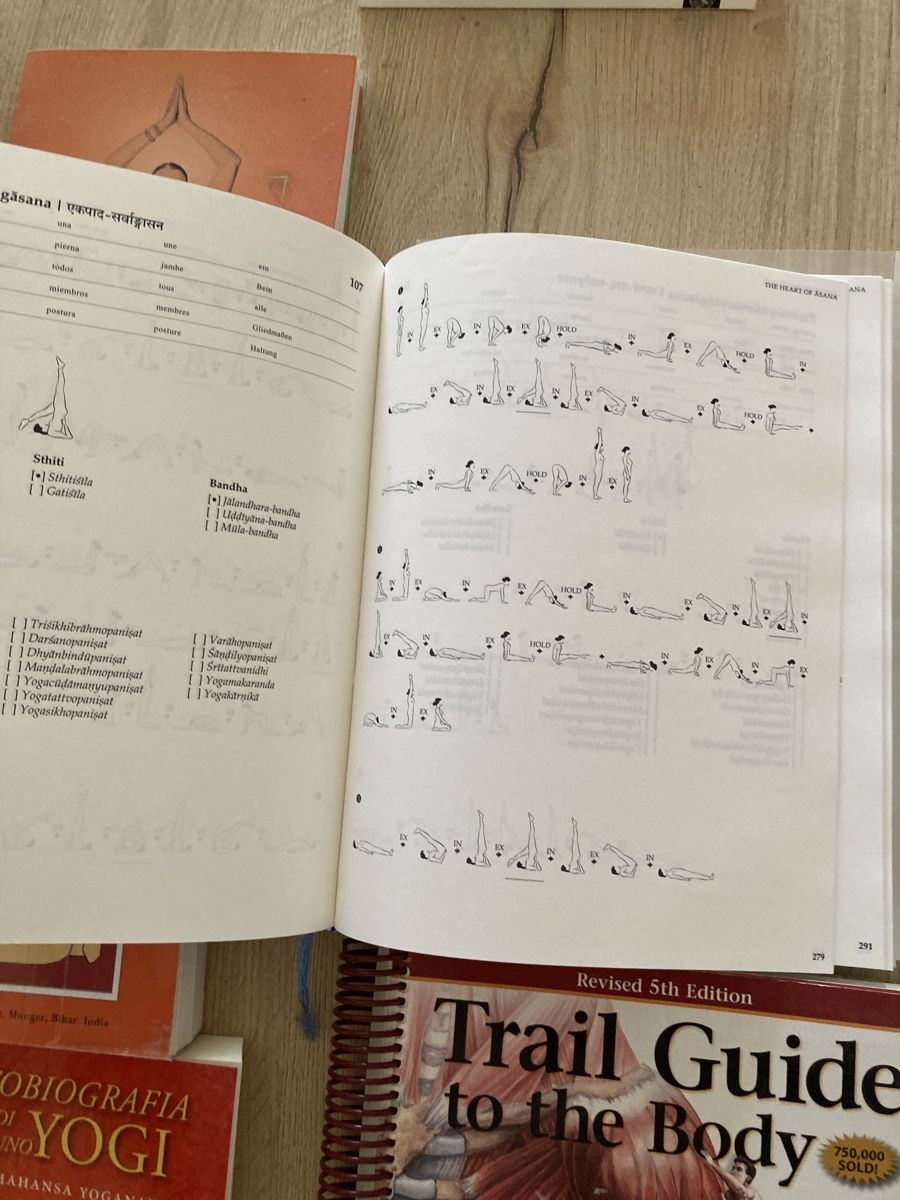 gāsana | एकपाद-सर्वाङ्गासन
una une ein
pierna jambe Bein
todos tous alle
miembros membres Gliedmaßen
postura posture Haltung
107
Sthiti
[•] Sthitiśīla
[ ] Gatiśīla
Bandha
[•] Jālandhara-bandha
[ ] Uḍḍīyāna-bandha
[ ] Mūla-bandha
[ ] Triśikhibrāhmopaniṣat
[ ] Darśanopaniṣat
[ ] Dhyānbindūpaniṣat
[ ] Maṇḍalabrāhmopaniṣat
[ ] Yogacūḍāmaṇyupaniṣat
[ ] Yogatattvopaniṣat
[ ] Yogasikhopaniṣat
[ ] Varāhopaniṣat
[ ] Śāṇḍilyopaniṣat
[ ] Śrītattvanidhi
[ ] Yogamakaranda
[ ] Yogakārṇikā
THE HEART OF ĀSANA
ANA
IN EX IN EX HOLD IN EX HOLD IN
EX IN EX IN EX IN EX HOLD
IN EX HOLD IN EX
IN EX IN EX HOLD IN EX IN EX IN
EX IN EX HOLD IN EX IN EX
IN EX
EX IN EX IN EX IN
279
291
, Munger, Bihar, India
OBIOGRAFIA
DI
UNO YOGI
AHANSA YOGANA
Revised 5th Edition
Trail Guide
to the Body
750,000
SOLD!